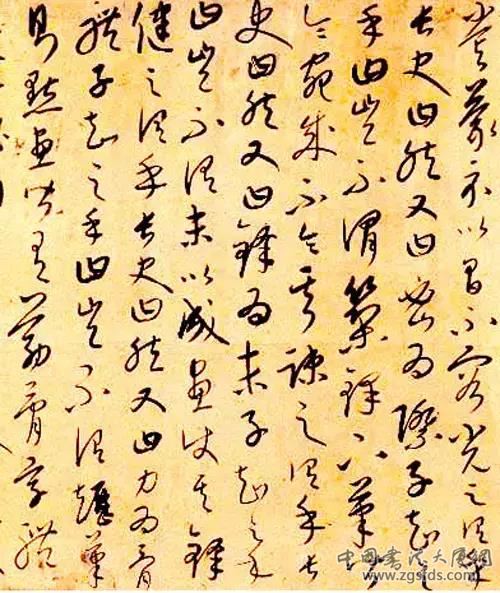 嘗蒙示以間不容光之謂乎
長史曰然又曰密為際子知之
乎曰豈不謂築鋒下筆皆
令宛成不令其疎之謂乎長
史曰然又曰鋒為末子知之乎
曰豈不謂末以成畫使其鋒
健之謂乎長史曰然又曰力為骨
體子知之乎曰豈不謂趯筆
則點畫皆有筋骨字體
中国书法大厦网
www.zgsfds.com